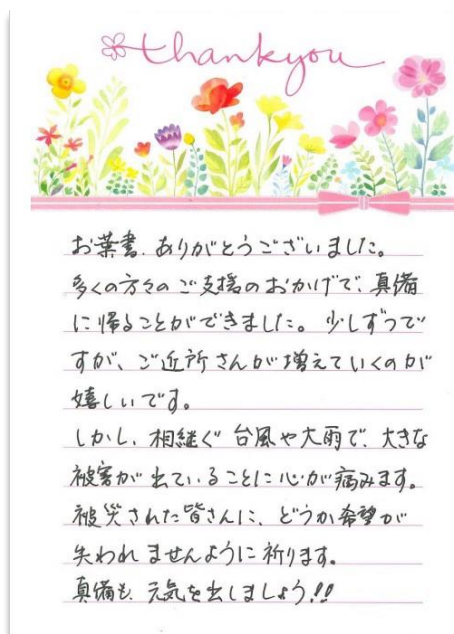 thankyou
お葉書、ありがとうございました。
多くの方々のご支援のおかげで、真備
に帰ることができました。少しずつで
すが、ご近所さんが増えていくのが
嬉しいです。
しかし、相継ぐ台風や大雨で、大きな
被害が出ていることに心が痛みます。
被災された皆さんに、どうか希望が
失われませんように祈ります。
真備も、元気を出しましょう!!